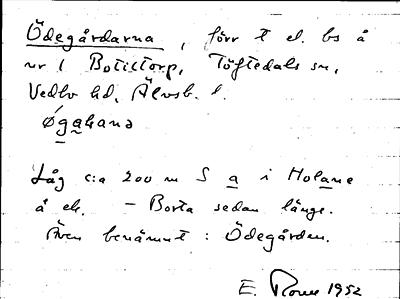 Ödegårdarna, förr t el. bs å
nr 1 Botiltorp, Töftedals sn,
Vedbo hd, Älvsb. l.
øgaɧanə
Låg c:a 200 m S a i Holane
å ek. – Borta sedan länge.
Även benämnt: Ödegården.
E. 1952